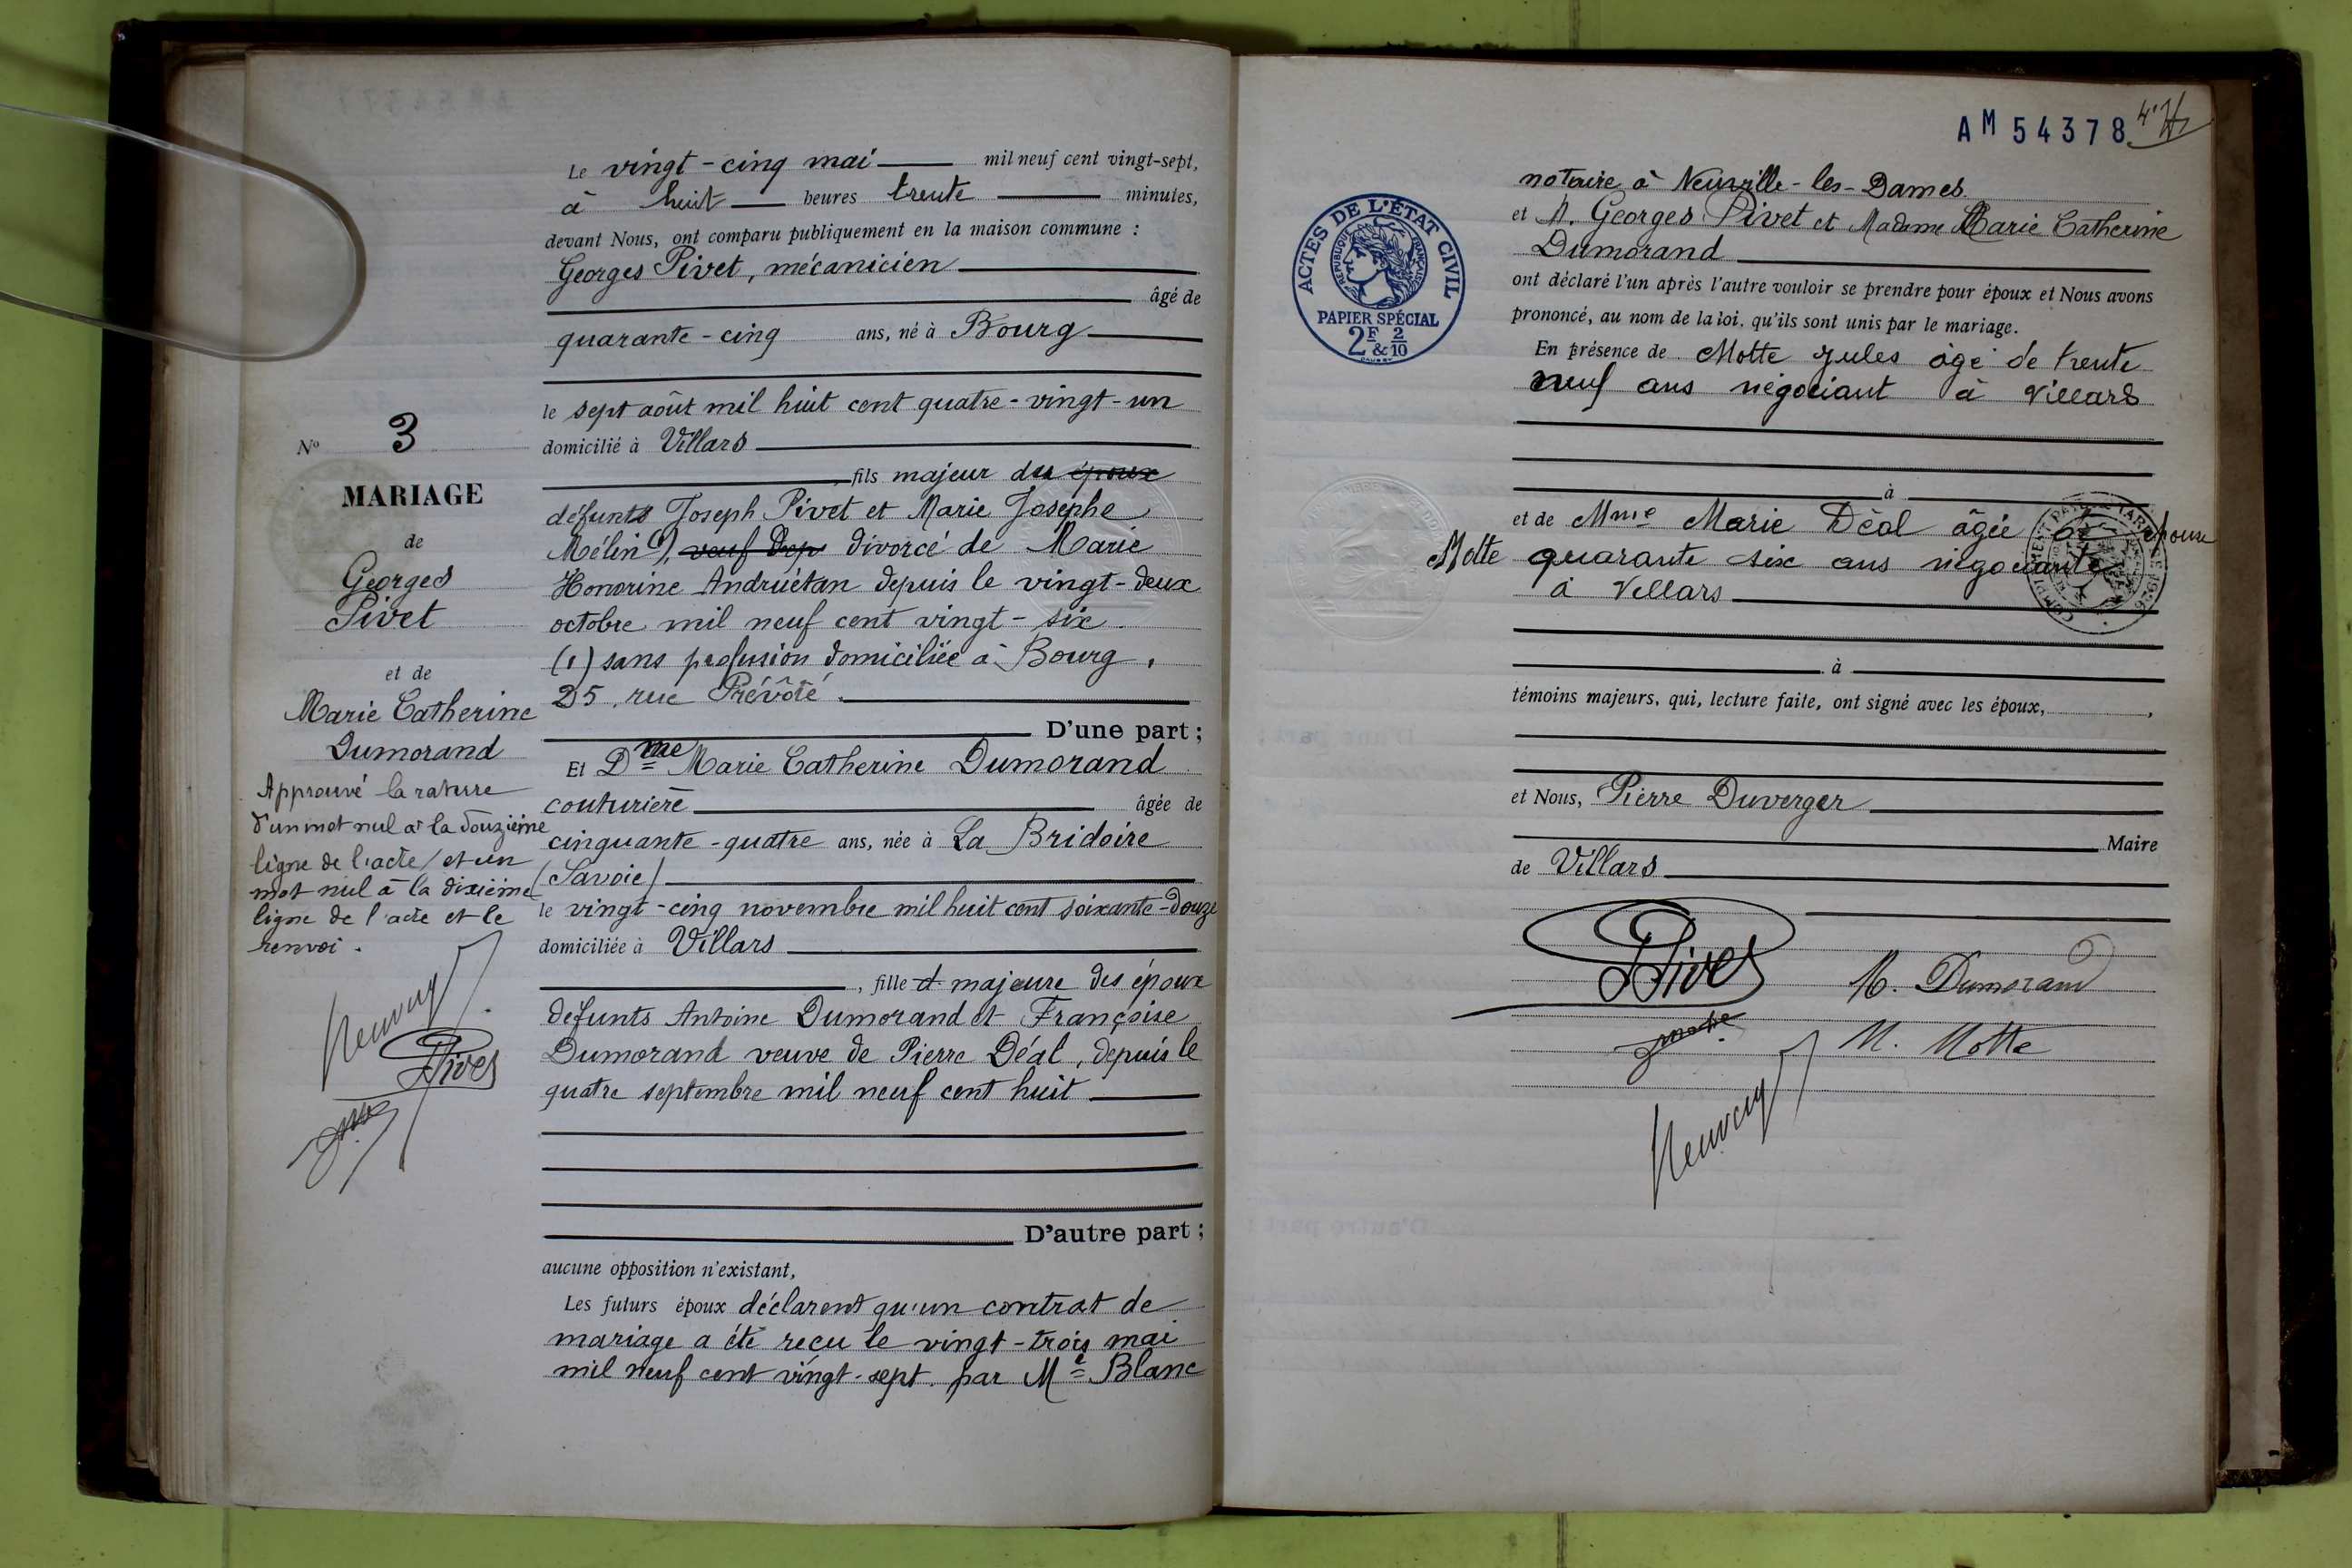 Le vingt-cinq mai mil neuf cent vingt-sept,
à huit heures trente minutes,
devant Nous, ont comparu publiquement en la maison commune :
Georges Pivet, mécanicien
âgé de
quarante-cinq ans, né à Bourg
le sept août mil huit cent quatre-vingt-un
domicilié à Villars
fils majeur des époux
défunts Joseph Pivet et Marie Josephe
Mélin (1), veuf dep divorcé de Marie
Honorine Andruétan depuis le vingt-deux
octobre mil neuf cent vingt-six
(1) sans profession domiciliée à Bourg,
25, rue Prévôté.
D'une part ;
Et Dme Marie Catherine Dumorand
couturière âgée de
cinquante-quatre ans, née à La Bridoire
(Savoie)
le vingt-cinq novembre mil huit cent soixante-douze
domiciliée à Villars
, fille d majeure des époux
défunts Antoine Dumorand et Françoise
Dumorand veuve de Pierre Déal, depuis le
quatre septembre mil neuf cent huit
D'autre part ;
aucune opposition n'existant,
Les futurs époux déclarent qu'un contrat de
mariage a été reçu le vingt-trois mai
mil neuf cent vingt-sept, par Me Blanc
No 3
MARIAGE
de
Georges
Pivet
et de
Marie Catherine
Dumorand
Approuvé la rature
d'un mot nul à la douzième
ligne de l'acte / et un
mot nul à la dixième
ligne de l'acte et le
renvoi.
Pivet
AM 54378
ACTES DE L'ÉTAT CIVIL
RÉPUBLIQUE FRANÇAISE
PAPIER SPÉCIAL
2F & 2/10
notaire à Neuville-les-Dames
et M. Georges Pivet et Madame Marie Catherine
Dumorand
ont déclaré l'un après l'autre vouloir se prendre pour époux et Nous avons
prononcé, au nom de la loi, qu'ils sont unis par le mariage.
En présence de Motte Jules âgé de trente
neuf ans négociant à Villars
à
et de Mme Marie Déal âgée de épouse
Motte quarante six ans négociante
à Villars
à
témoins majeurs, qui, lecture faite, ont signé avec les époux,
et Nous, Pierre Duverger
Maire
de Villars
Pivet
M. Dumorand
M. Motte